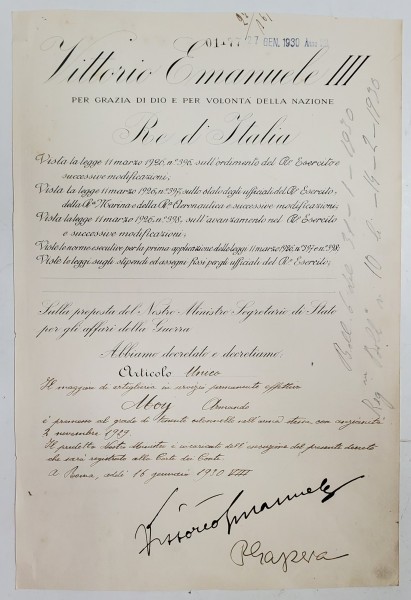 01477 27 GEN. 1930
Vittorio Emanuele III
PER GRAZIA DI DIO E PER VOLONTA DELLA NAZIONE
Re d'Italia
Vista la legge 11 marzo 1926, n. 396, sull'ordinamento del R. Esercito e
successive modificazioni;
Vista la legge 11 marzo 1926, n. 397, sullo stato degli ufficiali del R. Esercito,
della R. Marina e della R. Aeronautica e successive modificazioni;
Vista la legge 11 marzo 1926, n. 398, sull'avanzamento nel R. Esercito
e successive modificazioni;
Viste le norme esecutive per la prima applicazione della legge 11 marzo 1926, n. 397 e n. 398;
Viste le leggi sugli stipendi ed assegni fissi per gli ufficiali del R. Esercito;
Sulla proposta del Nostro Ministro Segretario di Stato
per gli affari della Guerra
Abbiamo decretato e decretiamo:
Articolo Unico
Il maggiore di artiglieria in servizio permanente effettivo
Moy Armando
è promosso al grado di tenente colonnello nell'arma stessa, con anzianità
2 novembre 1929.
Il predetto Nostro Ministro è incaricato dell'esecuzione del presente decreto
che sarà registrato alla Corte dei Conti.
A Roma, addì 16 gennaio 1930 VIII
Vittorio Emanuele